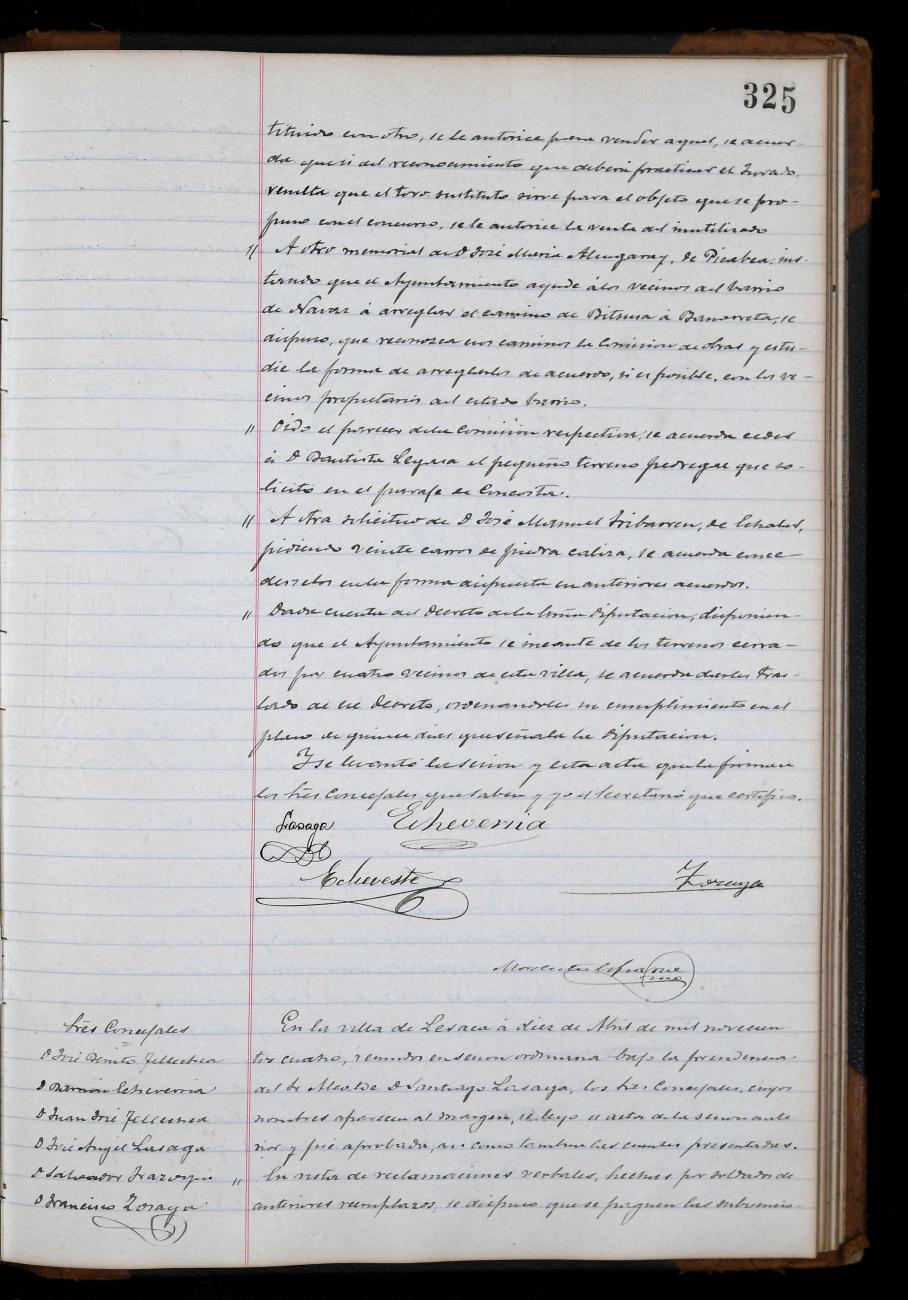 325
tituido con otro, se le autorice para vender aquel, se acuer-
da que si del reconocimiento que deberá practicar el Jurado
resulta que el toro sustituto sirve para el objeto que se pro-
puso con el concurso, se le autorice la venta del inutilizado
" A otro memorial de D José María Almgaray, de Picabea, ins-
tando que el Ayuntamiento ayude á los vecinos del barrio
de Navaz á arreglar el camino de Bitsusa á Banarreta, se
dispuso, que reconozca esos caminos la Comision de obras y estu-
die la forma de arreglarlos de acuerdo, si es posible, con los ve-
cinos propietarios del citado barrio.
" Oido el parecer de la Comisión respectiva, se acuerda ceder
á D Bautista Legasa el pequeño terreno pedregal que so-
licitó en el paraje de
" A otra solicitud de D José Manuel Iribarren, de Echalar,
pidiendo veinte carros de piedra caliza, se acuerda conce-
derselos en la forma dispuesta en anteriores acuerdos.
" Dada cuenta del Decreto de la Excma Diputacion, disponien-
do que el Ayuntamiento se incaute de los terrenos cerra-
dos por cuatro vecinos de esta villa, se acuerda darles tras-
lado de ese Decreto, ordenandoles su cumplimiento en el
plazo de quince dias que señala la Diputacion.
Y se levantó la sesion y esta acta que la firman
los Sres Concejales que saben y yo el Secretario que certifico.
Lasaga Echeverria
Echeveste Zozaya
Sres Concejales
D José Benito Tellechea
D Ramón Echeverria
D Juan José Tellechea
D José Angel Lasaga
D Salvador Irazoqui
D Francisco Zozaya
En la villa de Lesaca á diez de Abril de mil novecien
tos cuatro, reunidos en sesion ordinaria bajo la presidencia
del Sr Alcalde D Santiago Lasaga, los Sres Concejales, cuyos
nombres aparecen al margen, se leyó el acta de la sesion ante
rior y fué aprobada, asi como tambien las cuentas presentadas.
" En vista de reclamaciones verbales, hechas por soldados de
anteriores reemplazos, se dispuso que se paguen las subvencio-